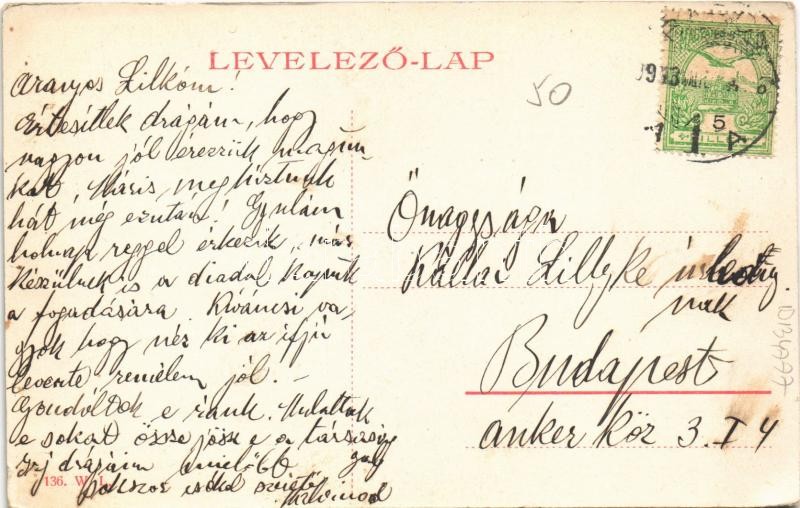 LEVELEZŐ-LAP
50
1913
5
Aranyos Lilkóm!
Értesitlek drágám, hogy
nagyon jól érezzük magun-
kat. Máris meghiztunk
hát még ezután! Gyulám
holnap reggel érkezik, már
készülünk is a diadal kapuk
a fogadására. Kiváncsi va-
gyok hogy néz ki az ifjú
levente remélem jól. —
Gondoltok e ránk. Mulattok
e sokat össze jösz e a társaság
irj drágám
sokszor
Őnagysága
Kállai Lillyke
nak
Budapest
anker köz 3. I 4
136. W. L.